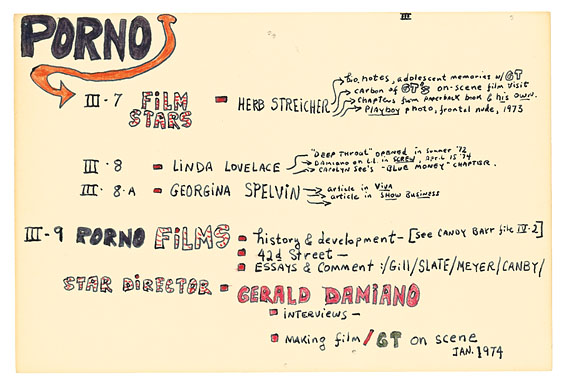 III
PORNO
III-7 FILM STARS - HERB STREICHER
bio. notes, adolescent memories w/ GT
carbon of GT's on-scene film visit
chapters from paperback book & his own.
Playboy photo, frontal nude, 1973
III-8 - LINDA LOVELACE
"DEEP THROAT" OPENED in summer '72
Damiano on L.L. in SCREW, April 15 '74
CAROLYN SEE'S "BLUE MONEY" CHAPTER.
III-8-A - GEORGINA SPELVIN
article in VIVA
article in SHOW BUSINESS
III-9 PORNO FILMS - history & development - [SEE CANDY BARR file IV-2]
42d Street -
ESSAYS & COMMENT :/Gill/SLATE/MEYER/CANBY/
STAR DIRECTOR - GERALD DAMIANO
INTERVIEWS -
MAKING film/GT on scene
JAN. 1974